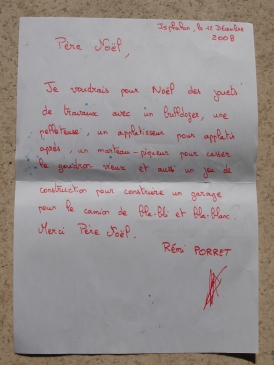 Isphahan, le 12 Décembre
2008
Père Noël,
Je voudrais pour Noël des jouets
de travaux avec un bulldozer, une
pelleteuse, un applatisseur pour applatir
après, un marteau-piqueur pour casser
le goudron vieux et aussi un jeu de
construction pour construire un garage
pour le camion de bla-bli et bla-blanc.
Merci Père Noël.
Rémi PORRET